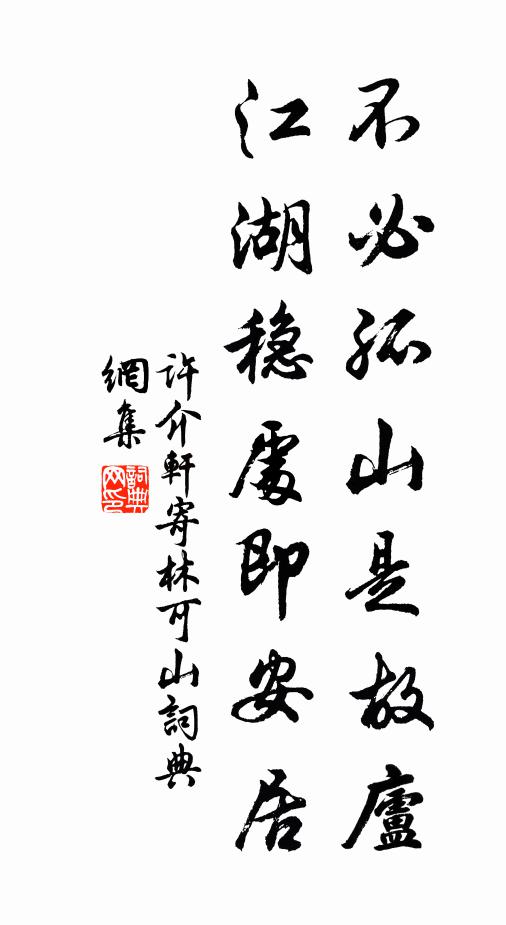 不必孤山是故廬
江湖稳處即安居
許介軒寄林可山詞典
網集
詞典網印